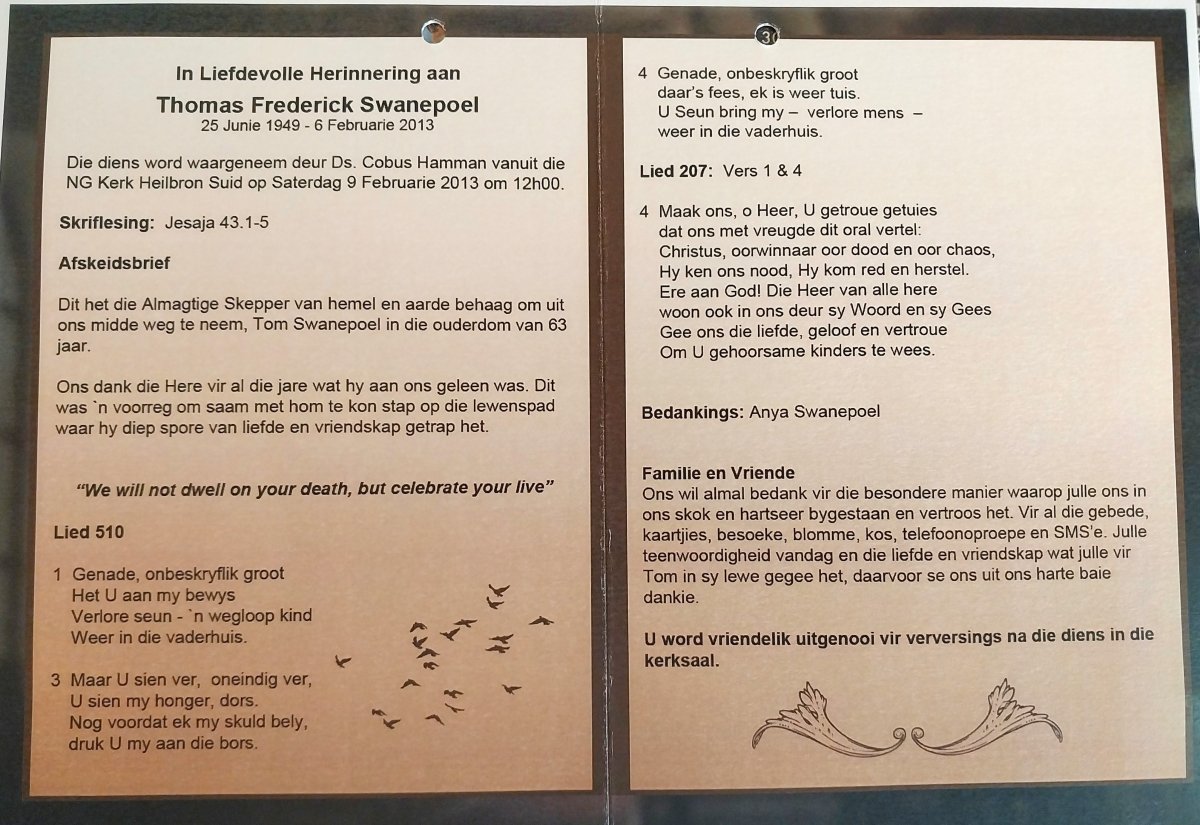 In Liefdevolle Herinnering aan
Thomas Frederick Swanepoel
25 Junie 1949 - 6 Februarie 2013
Die diens word waargeneem deur Ds. Cobus Hamman vanuit die
NG Kerk Heilbron Suid op Saterdag 9 Februarie 2013 om 12h00.
Skriflesing: Jesaja 43.1-5
Afskeidsbrief
Dit het die Almagtige Skepper van hemel en aarde behaag om uit
ons midde weg te neem, Tom Swanepoel in die ouderdom van 63
jaar.
Ons dank die Here vir al die jare wat hy aan ons geleen was. Dit
was `n voorreg om saam met hom te kon stap op die lewenspad
waar hy diep spore van liefde en vriendskap getrap het.
“We will not dwell on your death, but celebrate your live”
Lied 510
1 Genade, onbeskryflik groot
Het U aan my bewys
Verlore seun - `n wegloop kind
Weer in die vaderhuis.
3 Maar U sien ver, oneindig ver,
U sien my honger, dors.
Nog voordat ek my skuld bely,
druk U my aan die bors.
4 Genade, onbeskryflik groot
daar’s fees, ek is weer tuis.
U Seun bring my – verlore mens –
weer in die vaderhuis.
Lied 207: Vers 1 & 4
4 Maak ons, o Heer, U getroue getuies
dat ons met vreugde dit oral vertel:
Christus, oorwinnaar oor dood en oor chaos,
Hy ken ons nood, Hy kom red en herstel.
Ere aan God! Die Heer van alle here
woon ook in ons deur sy Woord en sy Gees
Gee ons die liefde, geloof en vertroue
Om U gehoorsame kinders te wees.
Bedankings: Anya Swanepoel
Familie en Vriende
Ons wil almal bedank vir die besondere manier waarop julle ons in
ons skok en hartseer bygestaan en vertroos het. Vir al die gebede,
kaartjies, besoeke, blomme, kos, telefoonoproepe en SMS’e. Julle
teenwoordigheid vandag en die liefde en vriendskap wat julle vir
Tom in sy lewe gegee het, daarvoor se ons uit ons harte baie
dankie.
U word vriendelik uitgenooi vir verversings na die diens in die
kerksaal.